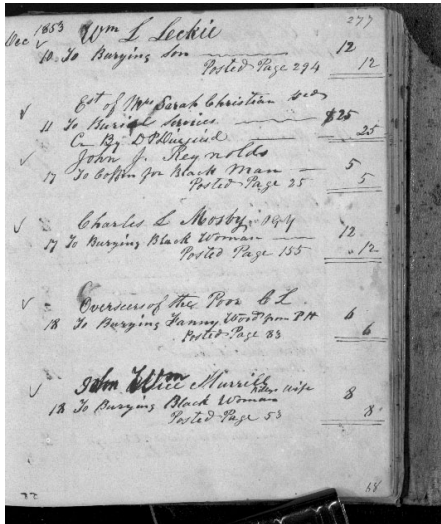 277
Dec 1853 Wm L Leckie
10 To Burying Son 12
Posted Page 294 12
Est of Mrs Sarah Christian decd
11 To Burial Services $25
Cr By D P 25
John J. Reynolds
17 To Coffin for Black Man 5
Posted Page 25 5
Charles L Mosby
17 To Burying Black Woman 12
Posted Page 155 12
Overseers of the Poor C L
18 To Burying Fanny Wood from P H 6
Posted Page 83 6
Wm Murrill wife
18 To Burying Black Woman 8
Posted Page 53 8
68